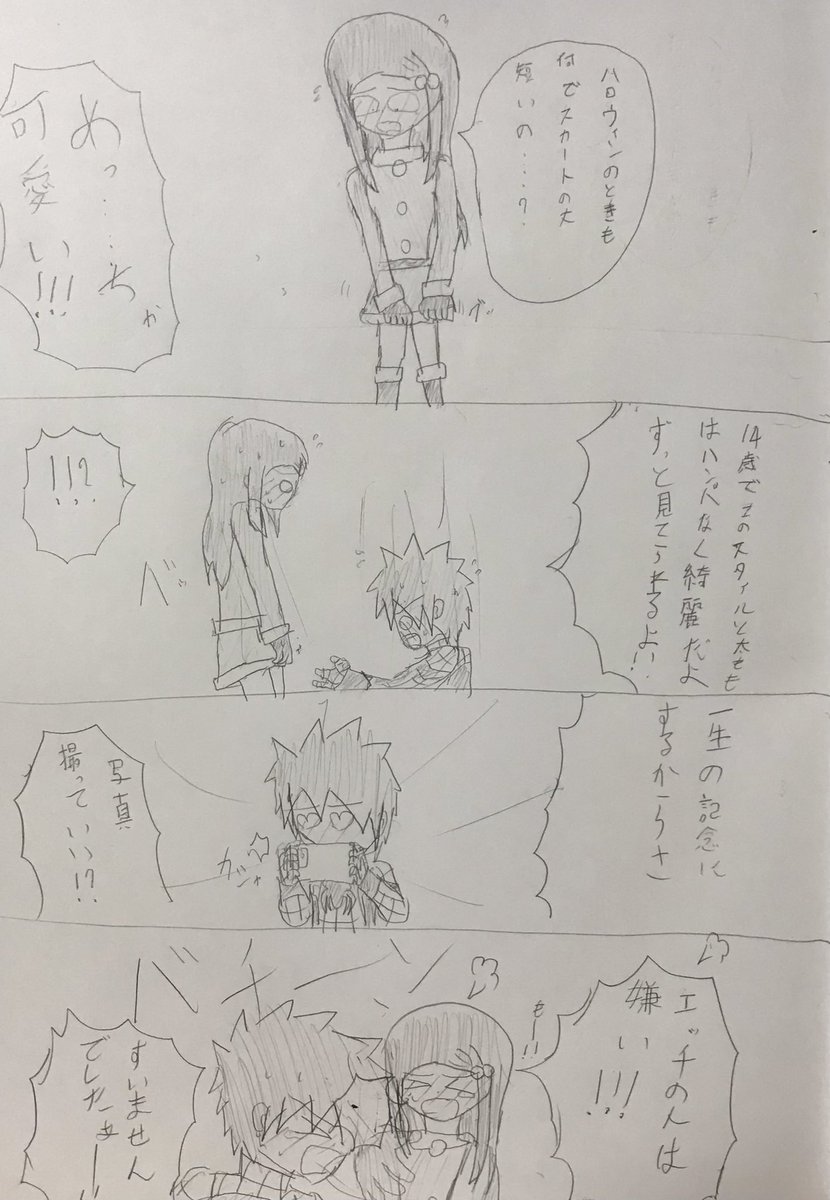 ハロウィンのときも
何でスカートの丈
短いの....?
めっ....ちゃ
可愛い!!!
14歳でそのスタイルと太もも
はハンパなく綺麗だよ
ずっと見てられるよ!!
!!?
一生の記念に
するからさ
ガシャ
写真
撮っていい!?
エッチの人は
嫌い!!!
もー!!
バチーン
すいません
でしたぁー!!